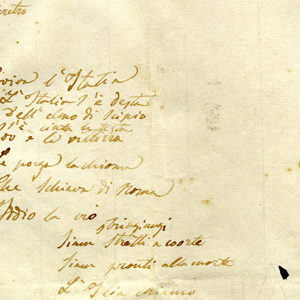 Evviva l'Italia
L'Italia s'è desta
Dell'elmo di Scipio
s'è cinta la testa
Dov'è la vittoria
Le porga la chioma
Che schiava di Roma
Iddio la creò
Stringiamci
Siam stretti a coorte
Siam pronti alla morte
L'Italia chiamò